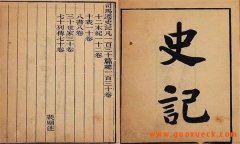 史記
司馬遷史記凡一百三十篇總一百三十卷
十二本紀一十二卷
十表一十卷
八書八卷
三十世家三十卷
七十列傳七十卷
裴駰註
www.guoxueck.com